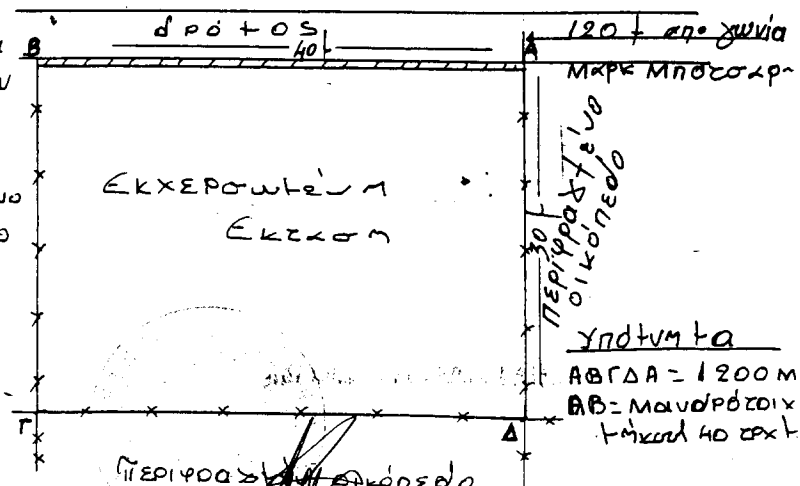 δρόμος
40μ
120μ απο γωνία
Β
Α
Μαρκ Μποτσαρ
Εκχερσωμένη
Έκταση
30μ
Περιφραγμένο
οικόπεδο
Υπόμνημα
ΑΒΓΔΑ = 1200 Μ
ΑΒ = Μανδρότοιχ
μήκους 40 τρχ μ
Γ
Δ
Περιφραγμένο οικόπεδο